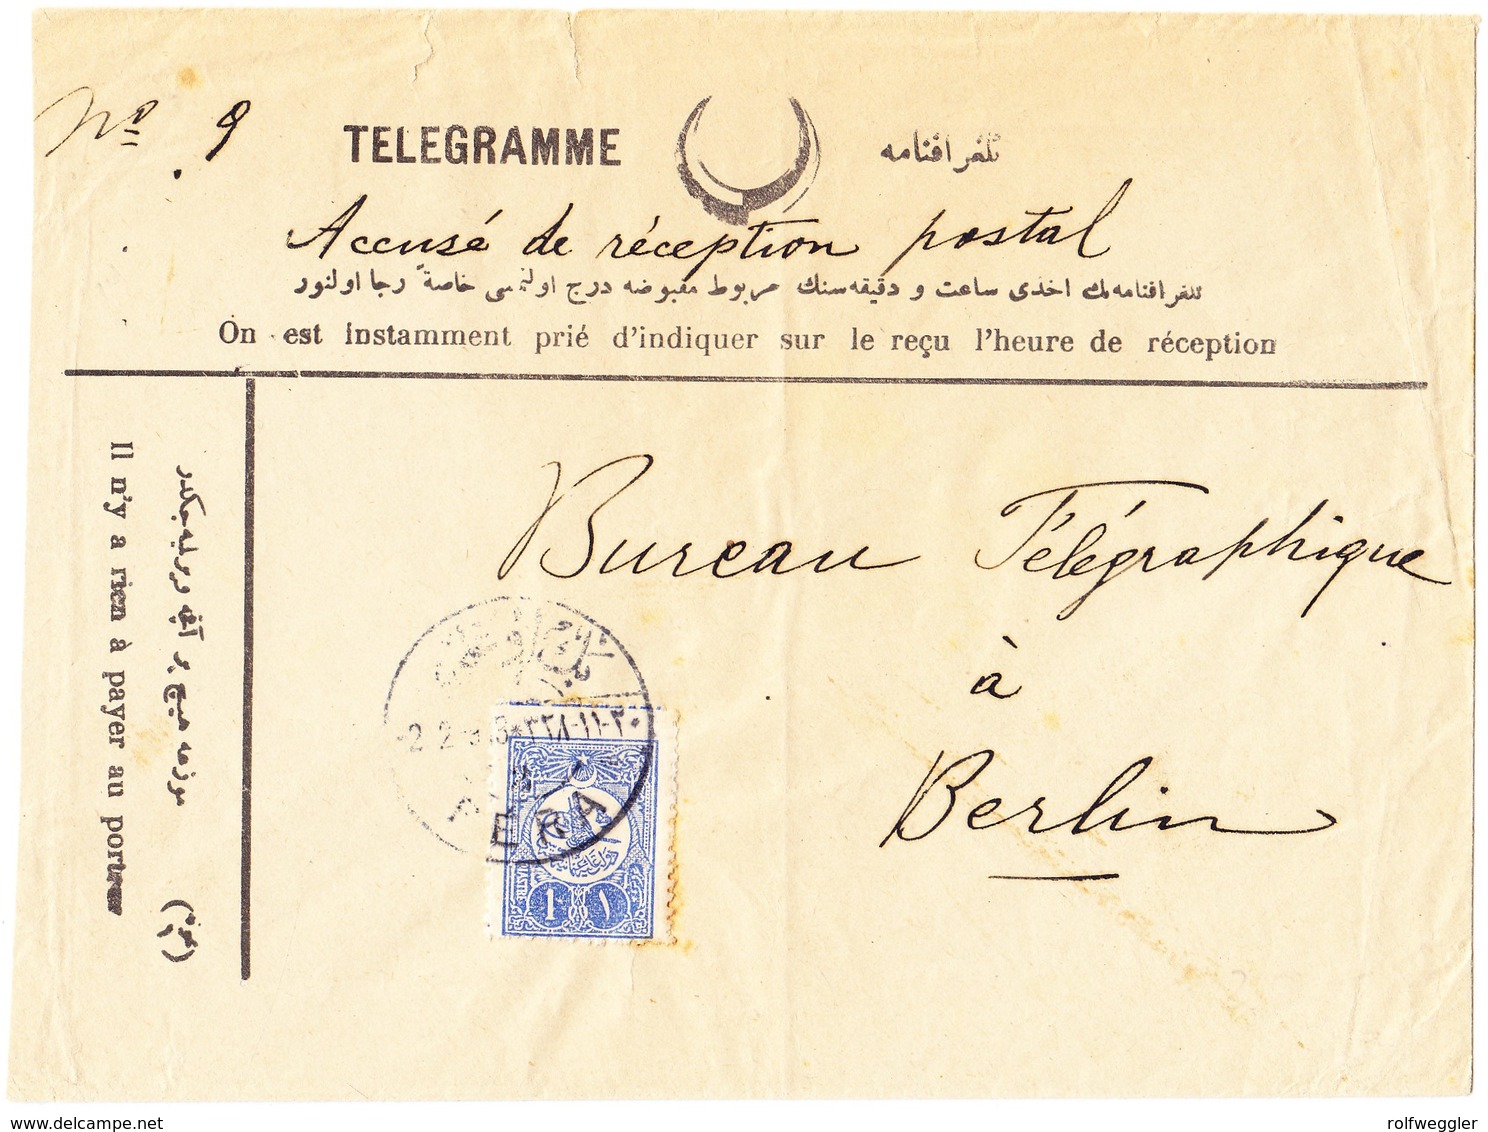 Nº 9
TELEGRAMME
تلغرافنامه
Accusé de réception postal
تلغرافنامه‌نك اخذی ساعت و دقیقه‌سنك مربوط مقبوضه درج اولنمسی خاصةً رجا اولنور
On est instamment prié d'indiquer sur le reçu l'heure de réception
Il n'y a rien à payer au porteur
موزعه هیچ بر آقچه ویرلیه‌جکدر
Bureau Télégraphique
à
Berlin
٣٢٨-١١-٢٠
PERA
1 ١
www.delcampe.net
rolfweggler